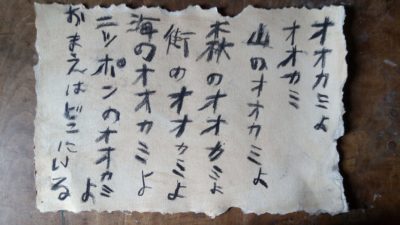 オオカミよ
オオカミ
山のオオカミよ
森のオオカミよ
街のオオカミよ
海のオオカミよ
ニッポンのオオカミよ
おまえはどこにいる